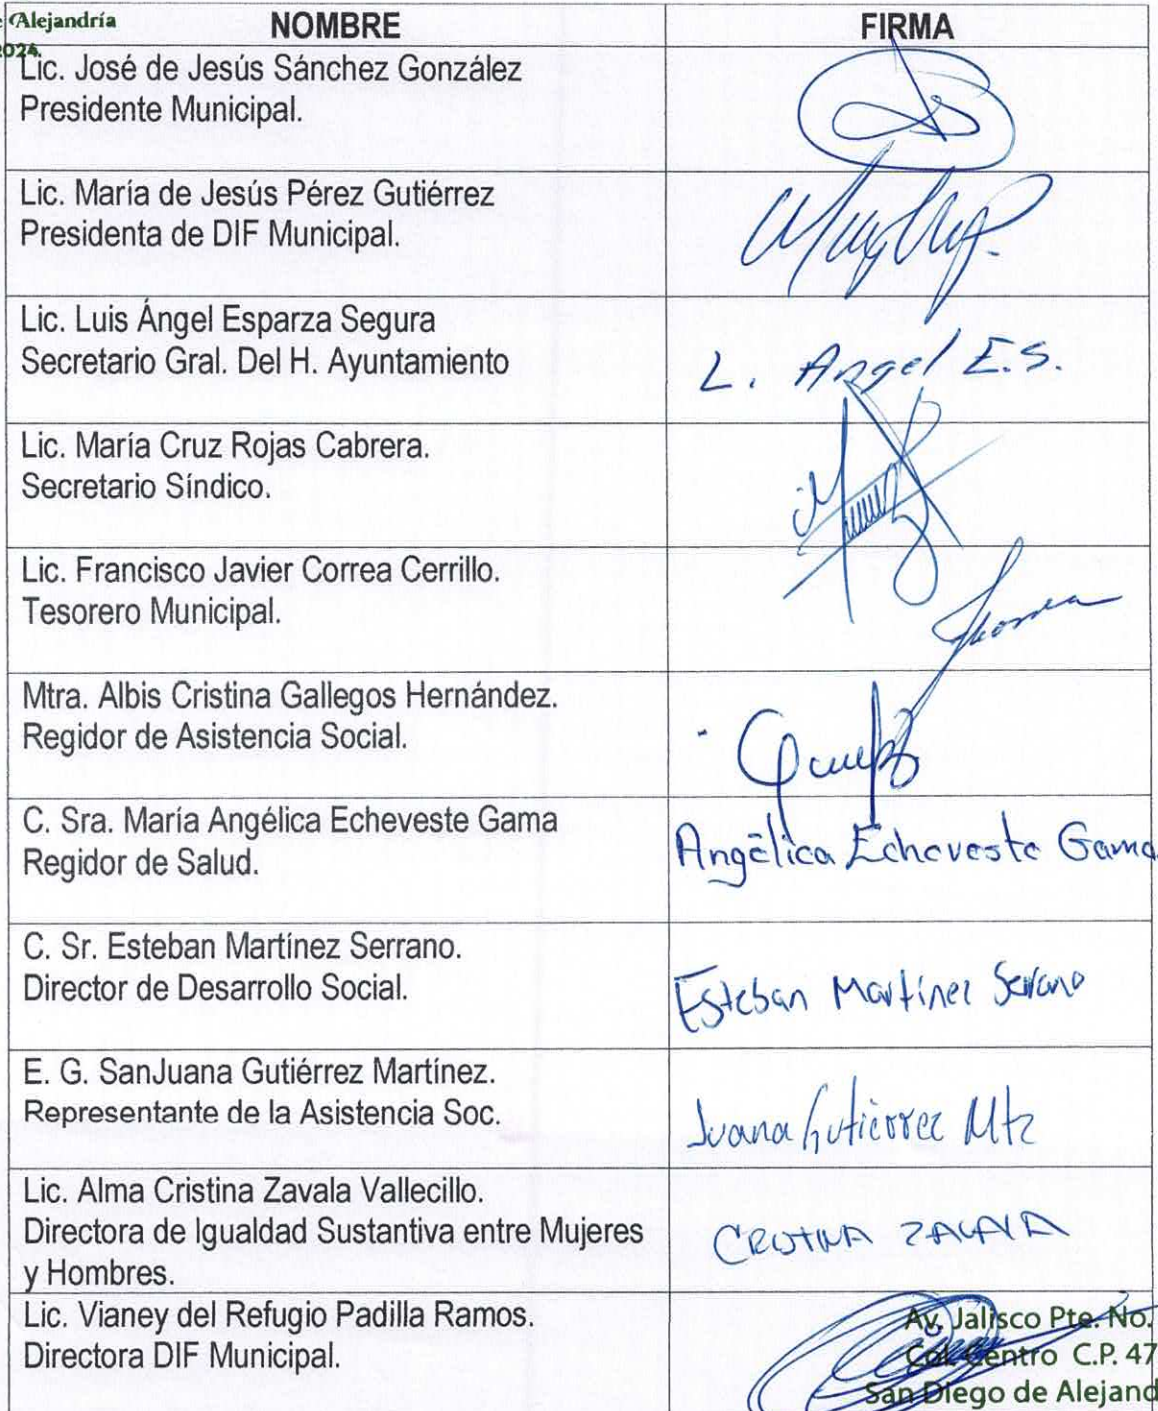 Alejandría
2024.
NOMBRE
FIRMA
Lic. José de Jesús Sánchez González
Presidente Municipal.
Lic. María de Jesús Pérez Gutiérrez
Presidenta de DIF Municipal.
Lic. Luis Ángel Esparza Segura
Secretario Gral. Del H. Ayuntamiento
L. Angel E.S.
Lic. María Cruz Rojas Cabrera.
Secretario Síndico.
Lic. Francisco Javier Correa Cerrillo.
Tesorero Municipal.
Mtra. Albis Cristina Gallegos Hernández.
Regidor de Asistencia Social.
C. Sra. María Angélica Echeveste Gama
Regidor de Salud.
Angélica Echeveste Gama
C. Sr. Esteban Martínez Serrano.
Director de Desarrollo Social.
Esteban Martínez Serano
E. G. SanJuana Gutiérrez Martínez.
Representante de la Asistencia Soc.
Juana Gutiérrez Mtz
Lic. Alma Cristina Zavala Vallecillo.
Directora de Igualdad Sustantiva entre Mujeres
y Hombres.
CRISTINA ZAVALA
Lic. Vianey del Refugio Padilla Ramos.
Directora DIF Municipal.
Av. Jalisco Pte. No.
Col. Centro C.P. 47
San Diego de Alejand